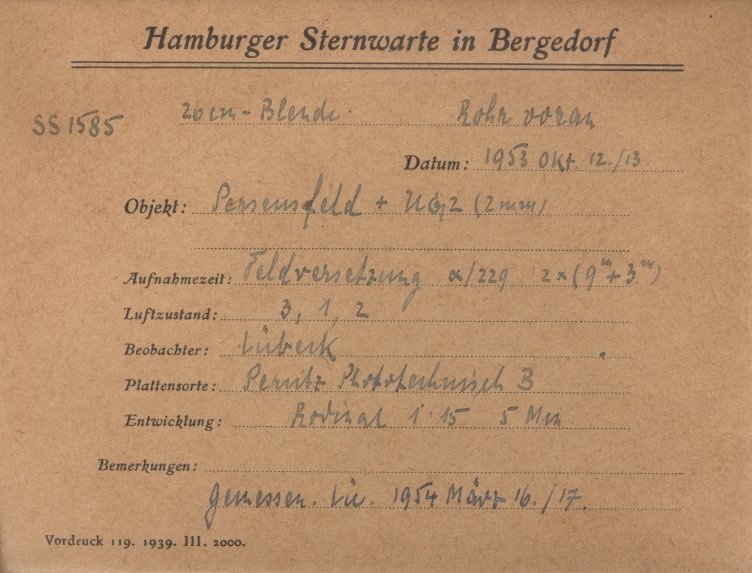 Hamburger Sternwarte in Bergedorf
SS 1585 26cm-Blende Rohr voran
Datum: 1953 Okt. 12./13
Objekt: Perseusfeld + (2mm)
Aufnahmezeit: Feldversetzung α/229 2×(9ᵐ+3ᵐ)
Luftzustand: 3, 1, 2
Beobachter: Lübeck
Plattensorte: Perutz Phototechnisch B
Entwicklung: Rodinal 1:15 5 Min
Bemerkungen:
Gemessen. Lü. 1954 März 16./17.
Vordruck 119. 1939. III. 2000.